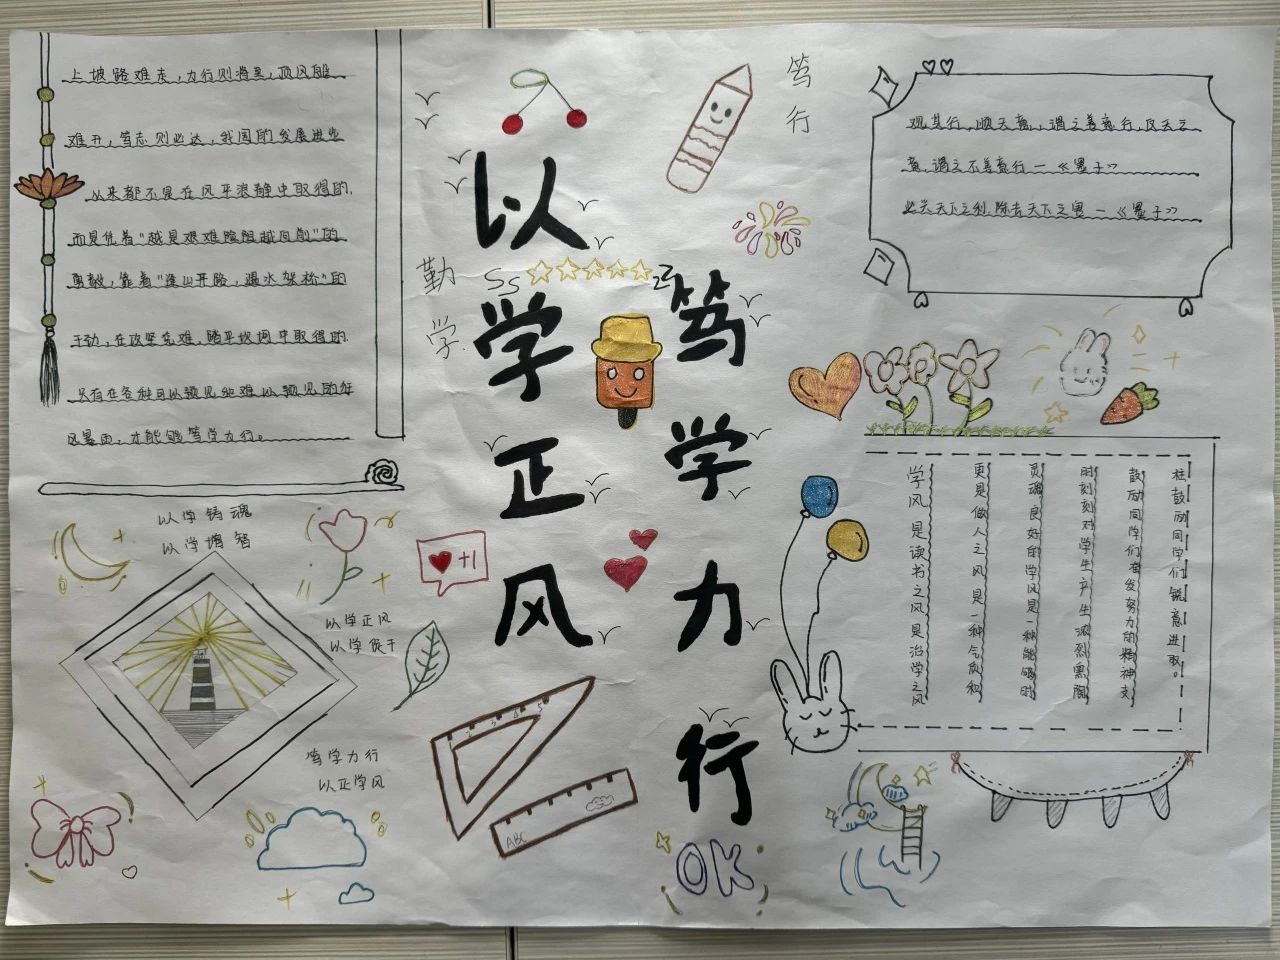 上坡路难走，力行则将至，顶风船
难开，笃志则必达，我国的发展进步
从来都不是在风平浪静中取得的，
而是凭着“越是艰难险阻越向前”的
勇毅，靠着“逢山开路，遇水架桥”的
干劲，在攻坚克难，踏平坎坷中取得的，
只有在各种可以预见和难以预见的狂
风暴雨，才能够笃学力行。
以学铸魂
以学增智
以学正风
以学促干
笃学力行
以正学风
勤学
以学正风
笃学力行
笃行
+1
1 2 3 4 5
ABC
OK
观其行，顺天意，谓之善意行，反天之
意，谓之不善意行 — 《墨子》
必兴天下之利，除去天下之害 — 《墨子》
学风是读书之风是治学之风
更是做人之风是一种气质和
灵魂良好的学风是一种能够时
时刻刻对学生产生浓烈熏陶
鼓励同学们奋发努力的精神支
柱鼓励同学们锐意进取。